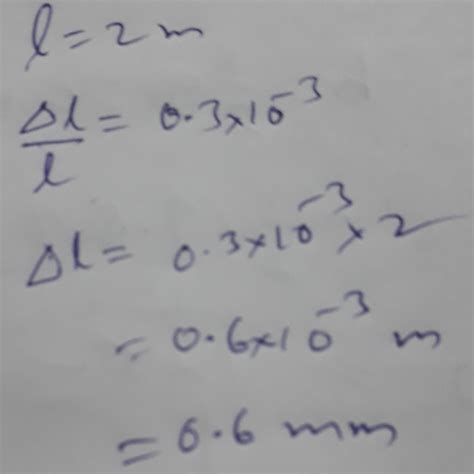 l = 2 m
Δl/l = 0.3×10⁻³
Δl = 0.3×10⁻³ × 2
= 0.6×10⁻³ m
= 0.6 mm